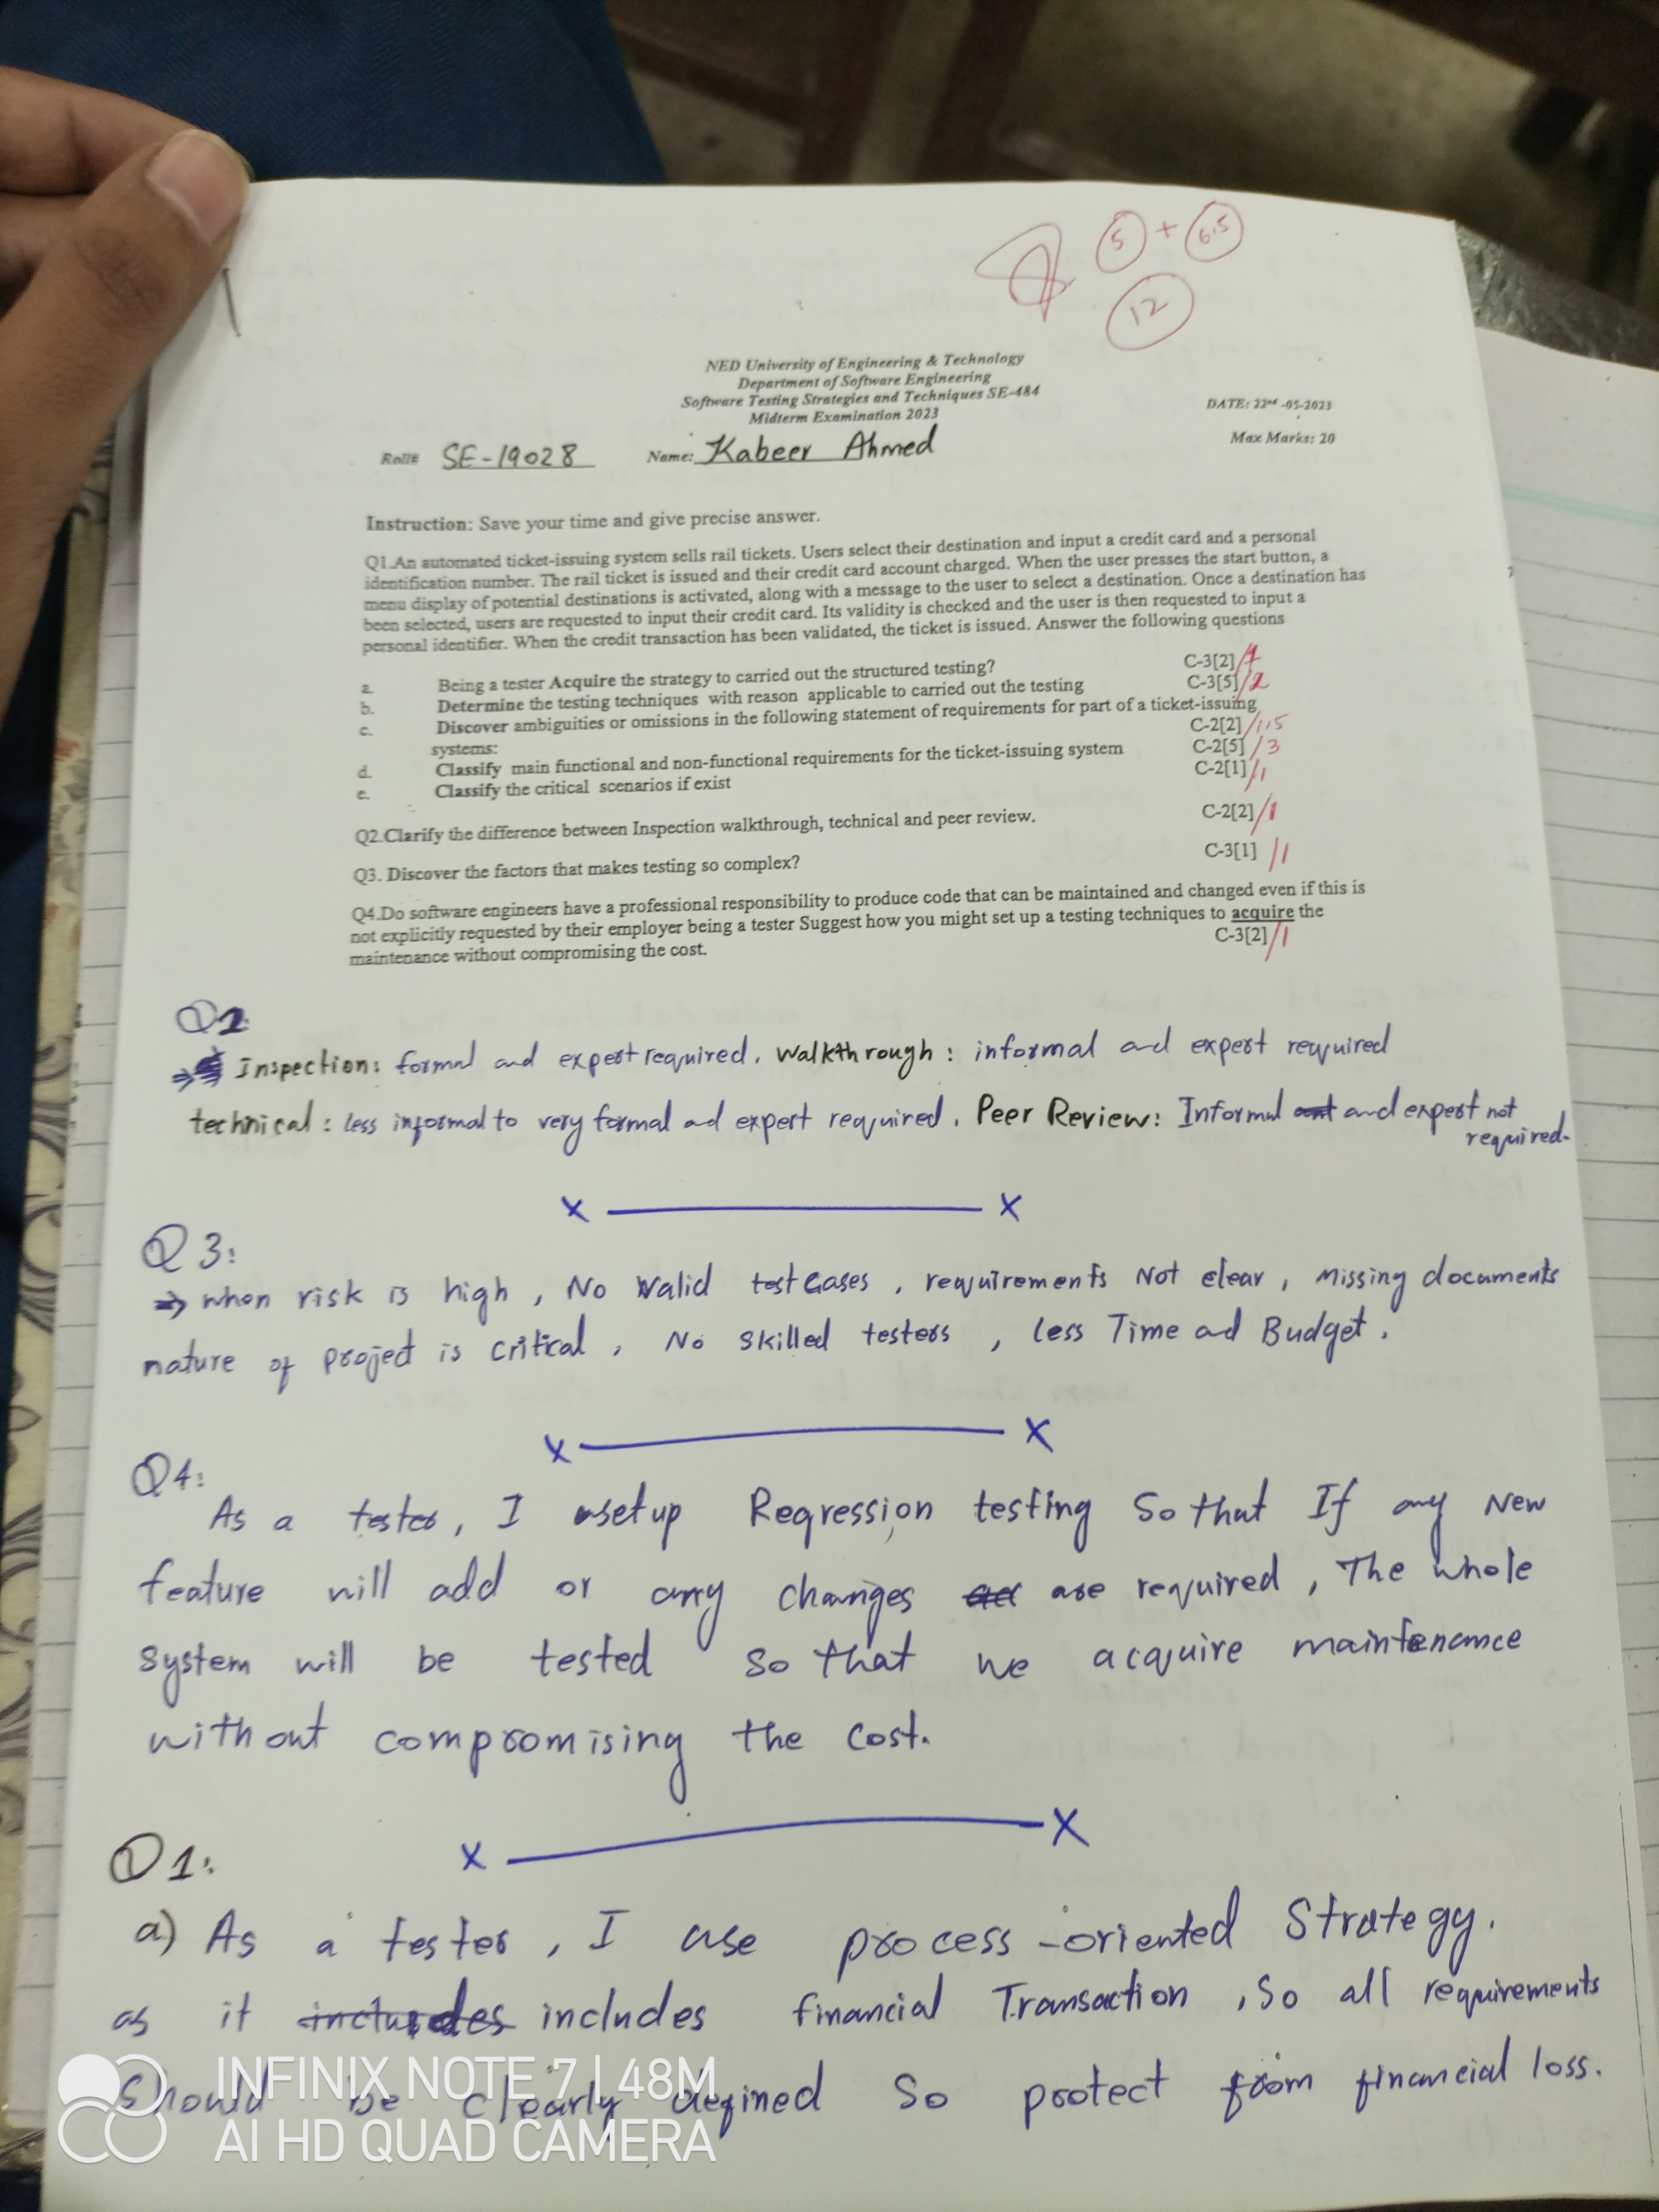 5 + 6.5
12
NED University of Engineering & Technology
Department of Software Engineering
Software Testing Strategies and Techniques SE-484
Midterm Examination 2023
DATE: 22nd -05-2023
Max Marks: 20
Roll# SE-19028 Name: Kabeer Ahmed
Instruction: Save your time and give precise answer.
Q1.An automated ticket-issuing system sells rail tickets. Users select their destination and input a credit card and a personal
identification number. The rail ticket is issued and their credit card account charged. When the user presses the start button, a
menu display of potential destinations is activated, along with a message to the user to select a destination. Once a destination has
been selected, users are requested to input their credit card. Its validity is checked and the user is then requested to input a
personal identifier. When the credit transaction has been validated, the ticket is issued. Answer the following questions
a. Being a tester Acquire the strategy to carried out the structured testing? C-3[2] /1
b. Determine the testing techniques with reason applicable to carried out the testing C-3[5] /2
c. Discover ambiguities or omissions in the following statement of requirements for part of a ticket-issuing
systems: C-2[2] /1.5
d. Classify main functional and non-functional requirements for the ticket-issuing system C-2[5] /3
e. Classify the critical scenarios if exist C-2[1] /1
Q2.Clarify the difference between Inspection walkthrough, technical and peer review. C-2[2] /1
Q3. Discover the factors that makes testing so complex? C-3[1] /1
Q4.Do software engineers have a professional responsibility to produce code that can be maintained and changed even if this is
not explicitly requested by their employer being a tester Suggest how you might set up a testing techniques to acquire the
maintenance without compromising the cost. C-3[2] /1
Q2
⇒ Inspection: formal and expert required. Walkthrough: informal and expert required
technical: less informal to very formal ad expert required. Peer Review: Informal and expert not
required.
x x
Q3:
⇒ when risk is high, No valid test cases, requirements Not clear, Missing documents
nature of project is critical, No skilled testers, less Time ad Budget.
x x
Q4:
As a tester, I setup Regression testing so that If any New
feature will add or any changes are required, The whole
system will be tested so that we acquire maintenance
without compromising the cost.
x x
Q1:
a) As a tester, I use process-oriented Strategy.
as it includes includes financial Transaction, So all requirements
should be clearly defined so protect from financial loss.
INFINIX NOTE 7 | 48M
AI HD QUAD CAMERA